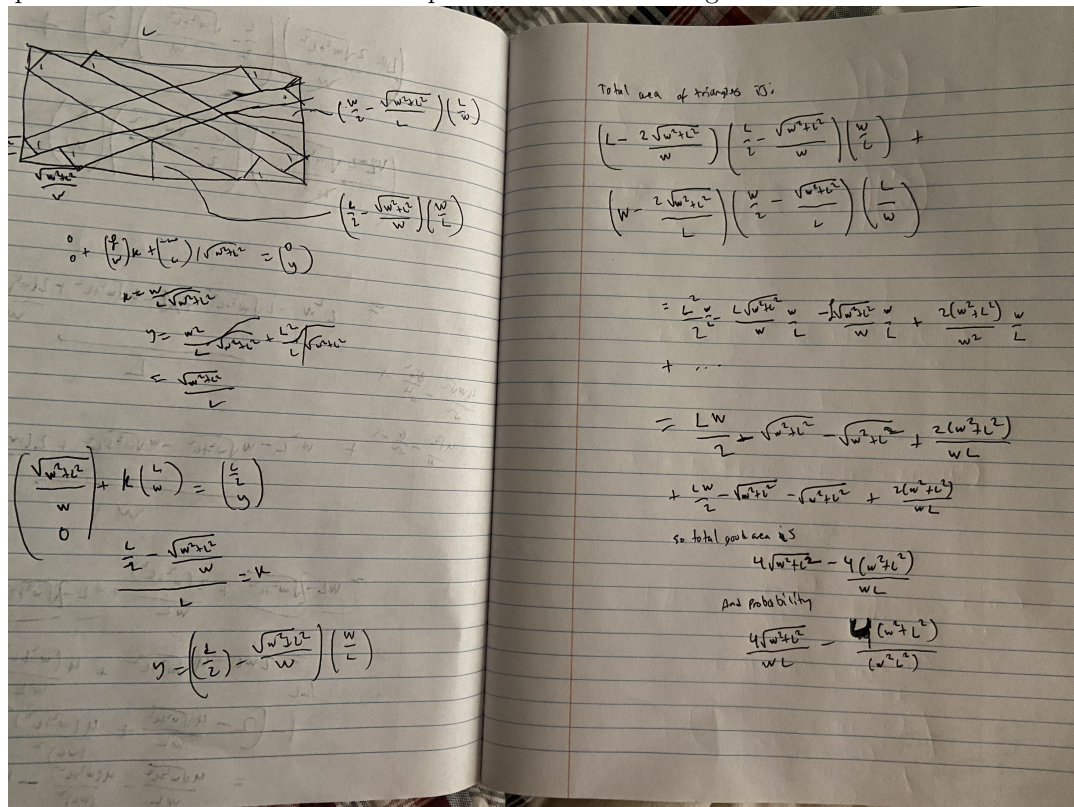 L
(w/2 - √(w²+L²)/L)(L/w)
√(w²+L²)/w
(L/2 - √(w²+L²)/w)(w/L)
y = w²/L√(w²+L²) + L²/L√(w²+L²)
= √(w²+L²)/L
(√(w²+L²)/w, 0) + k(L, w) = (L/2, y)
(L/2 - √(w²+L²)/w)/L = k
y = ((L/2) - √(w²+L²)/w)(w/L)
Total area of triangles is:
(L - 2√(w²+L²)/w)(L/2 - √(w²+L²)/w)(w/L) +
(w - 2√(w²+L²)/L)(w/2 - √(w²+L²)/L)(L/w)
= L²/2 w/L - L√(w²+L²)/w w/L - L√(w²+L²)/w w/L + 2(w²+L²)/w² w/L
+ ...
= LW/2 - √(w²+L²) - √(w²+L²) + 2(w²+L²)/wL
+ LW/2 - √(w²+L²) - √(w²+L²) + 2(w²+L²)/wL
so total good area is
4√(w²+L²) - 4(w²+L²)/wL
And probability
4√(w²+L²)/wL - 4(w²+L²)/(w²L²)